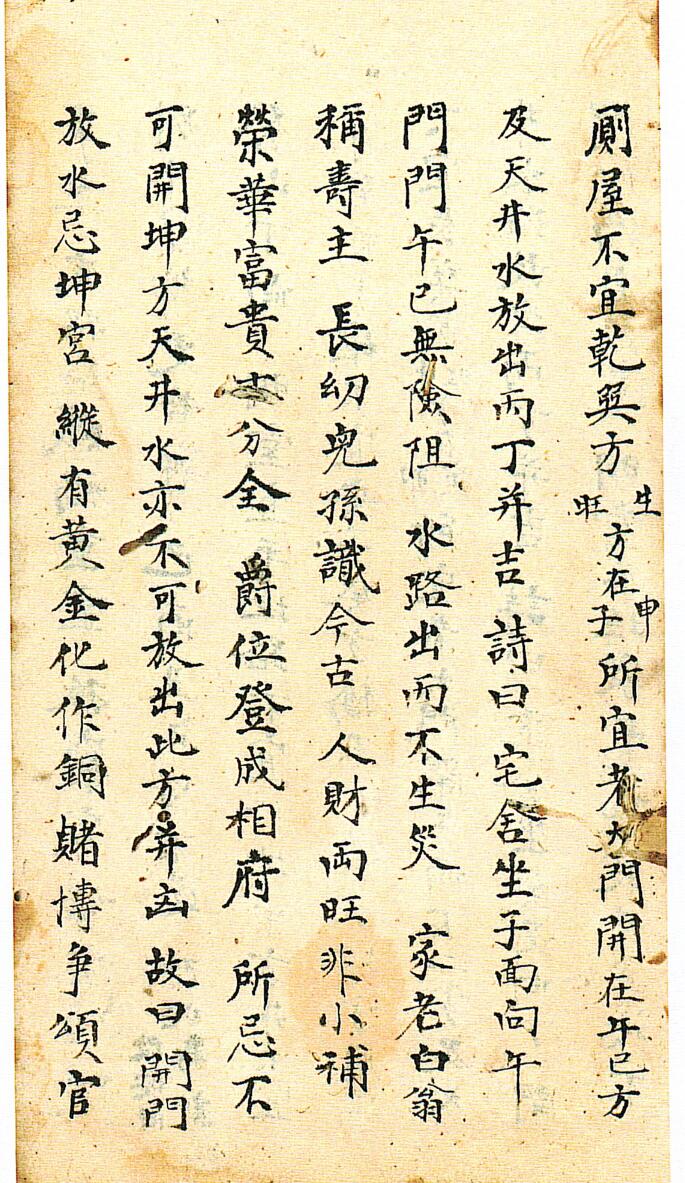 厠屋不宜乾巽方 生旺方在申子 所宜者大門開在午巳方
及天井水放出丙丁并吉 詩曰 宅舍坐子面向午
門門午巳無險阻 水路出而不生災 家老白翁
稱壽主 長幼兒孫識今古 人財両旺非小補
榮華富貴十分全 爵位登成相府 所忌不
可開坤方天井水亦不可放出此方并凶 故曰 開門
放水忌坤宮 縱有黃金化作銅 賭博争頌官